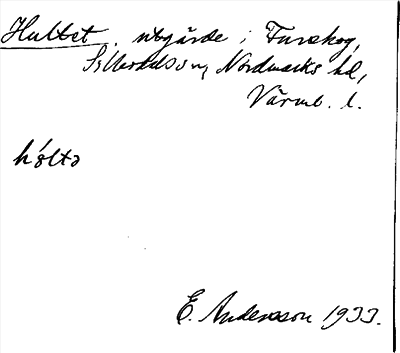 Hultet, utgärde i Furskog,
Silleruds sn, Nordmarks hd,
Värml. l.
hólta
E. Andersson 1933.